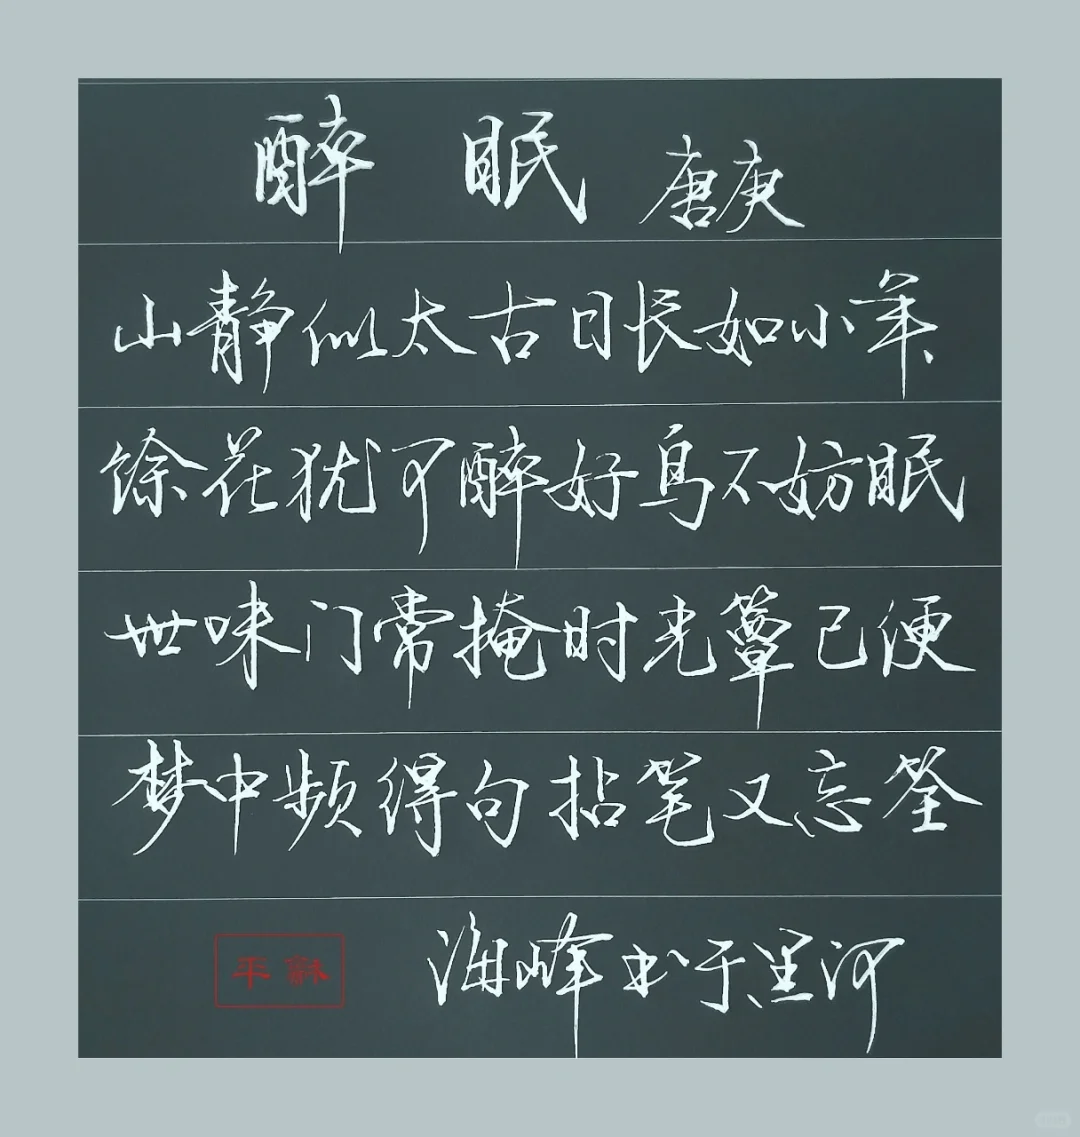 醉 眠 唐庚
山静似太古日长如小年
馀花犹可醉好鸟不妨眠
世味门常掩时光簟已便
梦中频得句拈笔又忘筌
海峰书于黑河